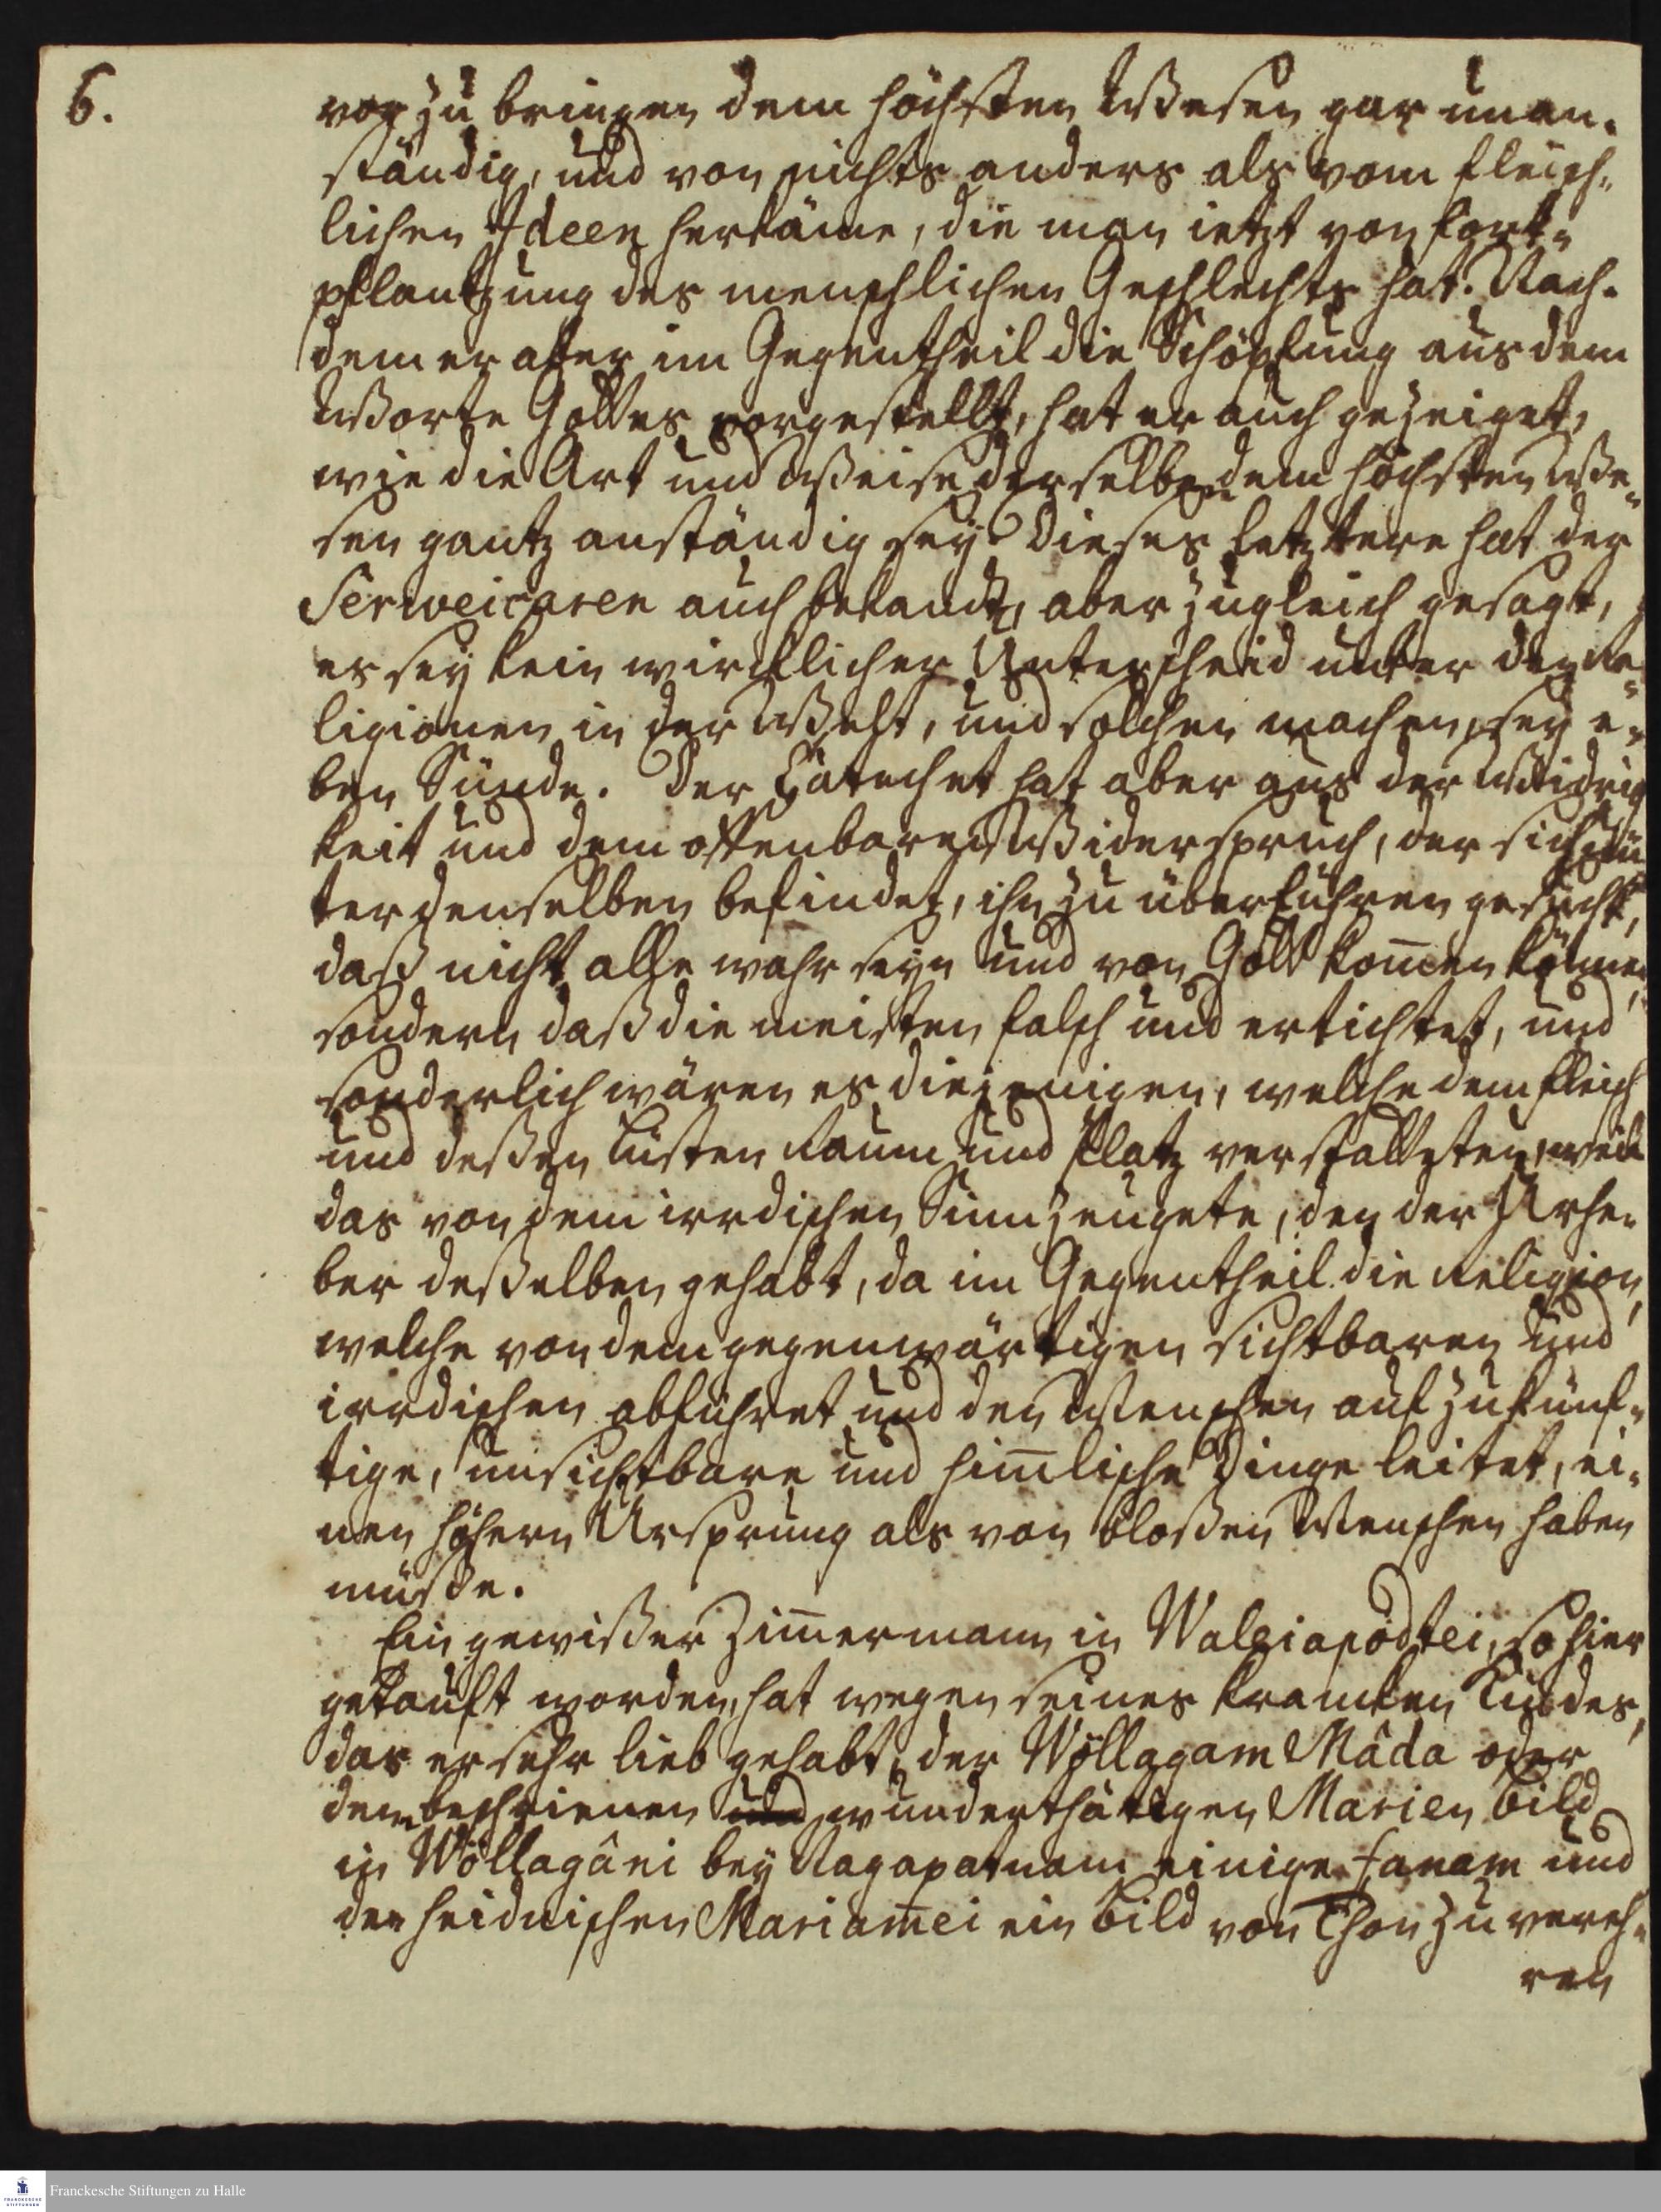 6.
vor zu bringen dem höchsten Wesen gar unan-
ständig, und von nichts anders als vom fleisch-
lichen Ideen herkäme, die man ietzt von fort-
pflantzung des menschlichen Geschlechts hat. Nach-
dem er aber im Gegentheil die Schöpfung aus dem
Worte Gottes vorgestellt, hat er auch gezeiget,
wie die Art und Weise derselben dem höchsten We-
sen gantz anständig sey. Dieses letztere hat der
Serweicaren auch bekandt, aber zugleich gesagt,
es sey kein wircklicher Unterscheid unter den Re-
ligionen in der Welt, und solchen machen, sey e-
ben Sünde. Der Catechet hat aber aus der Widrig
keit und dem offenbaren Widerspruch, der sich un
ter denselben befindet, ihn zu überführen gesucht,
daß nicht alle wahr seyn und von Gott kom̄en können,
sondern daß die meisten falsch und ertichtet, und
sonderlich wären es diejenigen, welche dem fleisch
und deßen Lüsten Raum und Platz verstatteten, weil
das von dem irrdischen Sinn zeugete, den der Urhe-
ber deßelben gehabt, da im Gegentheil die Religion,
welche von dem gegenwärtigen sichtbaren und
irrdischen abführet und den Menschen auf zukünf-
tige, unsichtbare und him̄lische Dinge leitet, ei-
nen höhern Ursprung als von bloßen Menschen haben
müste.
Ein gewißer Zim̄ermann in Waleiapödtei, so hier
getauft worden, hat wegen seines krancken Kindes,
das er sehr lieb gehabt, der Wöllagam Mâda oder
dem beschrienen und wunderthätigen Marien bild
in Wöllagâni bey Nagapatnam einige fanam und
der heidnischen Mariam̄ei ein bild von Thon zu vereh-
ren
Franckesche Stiftungen zu Halle